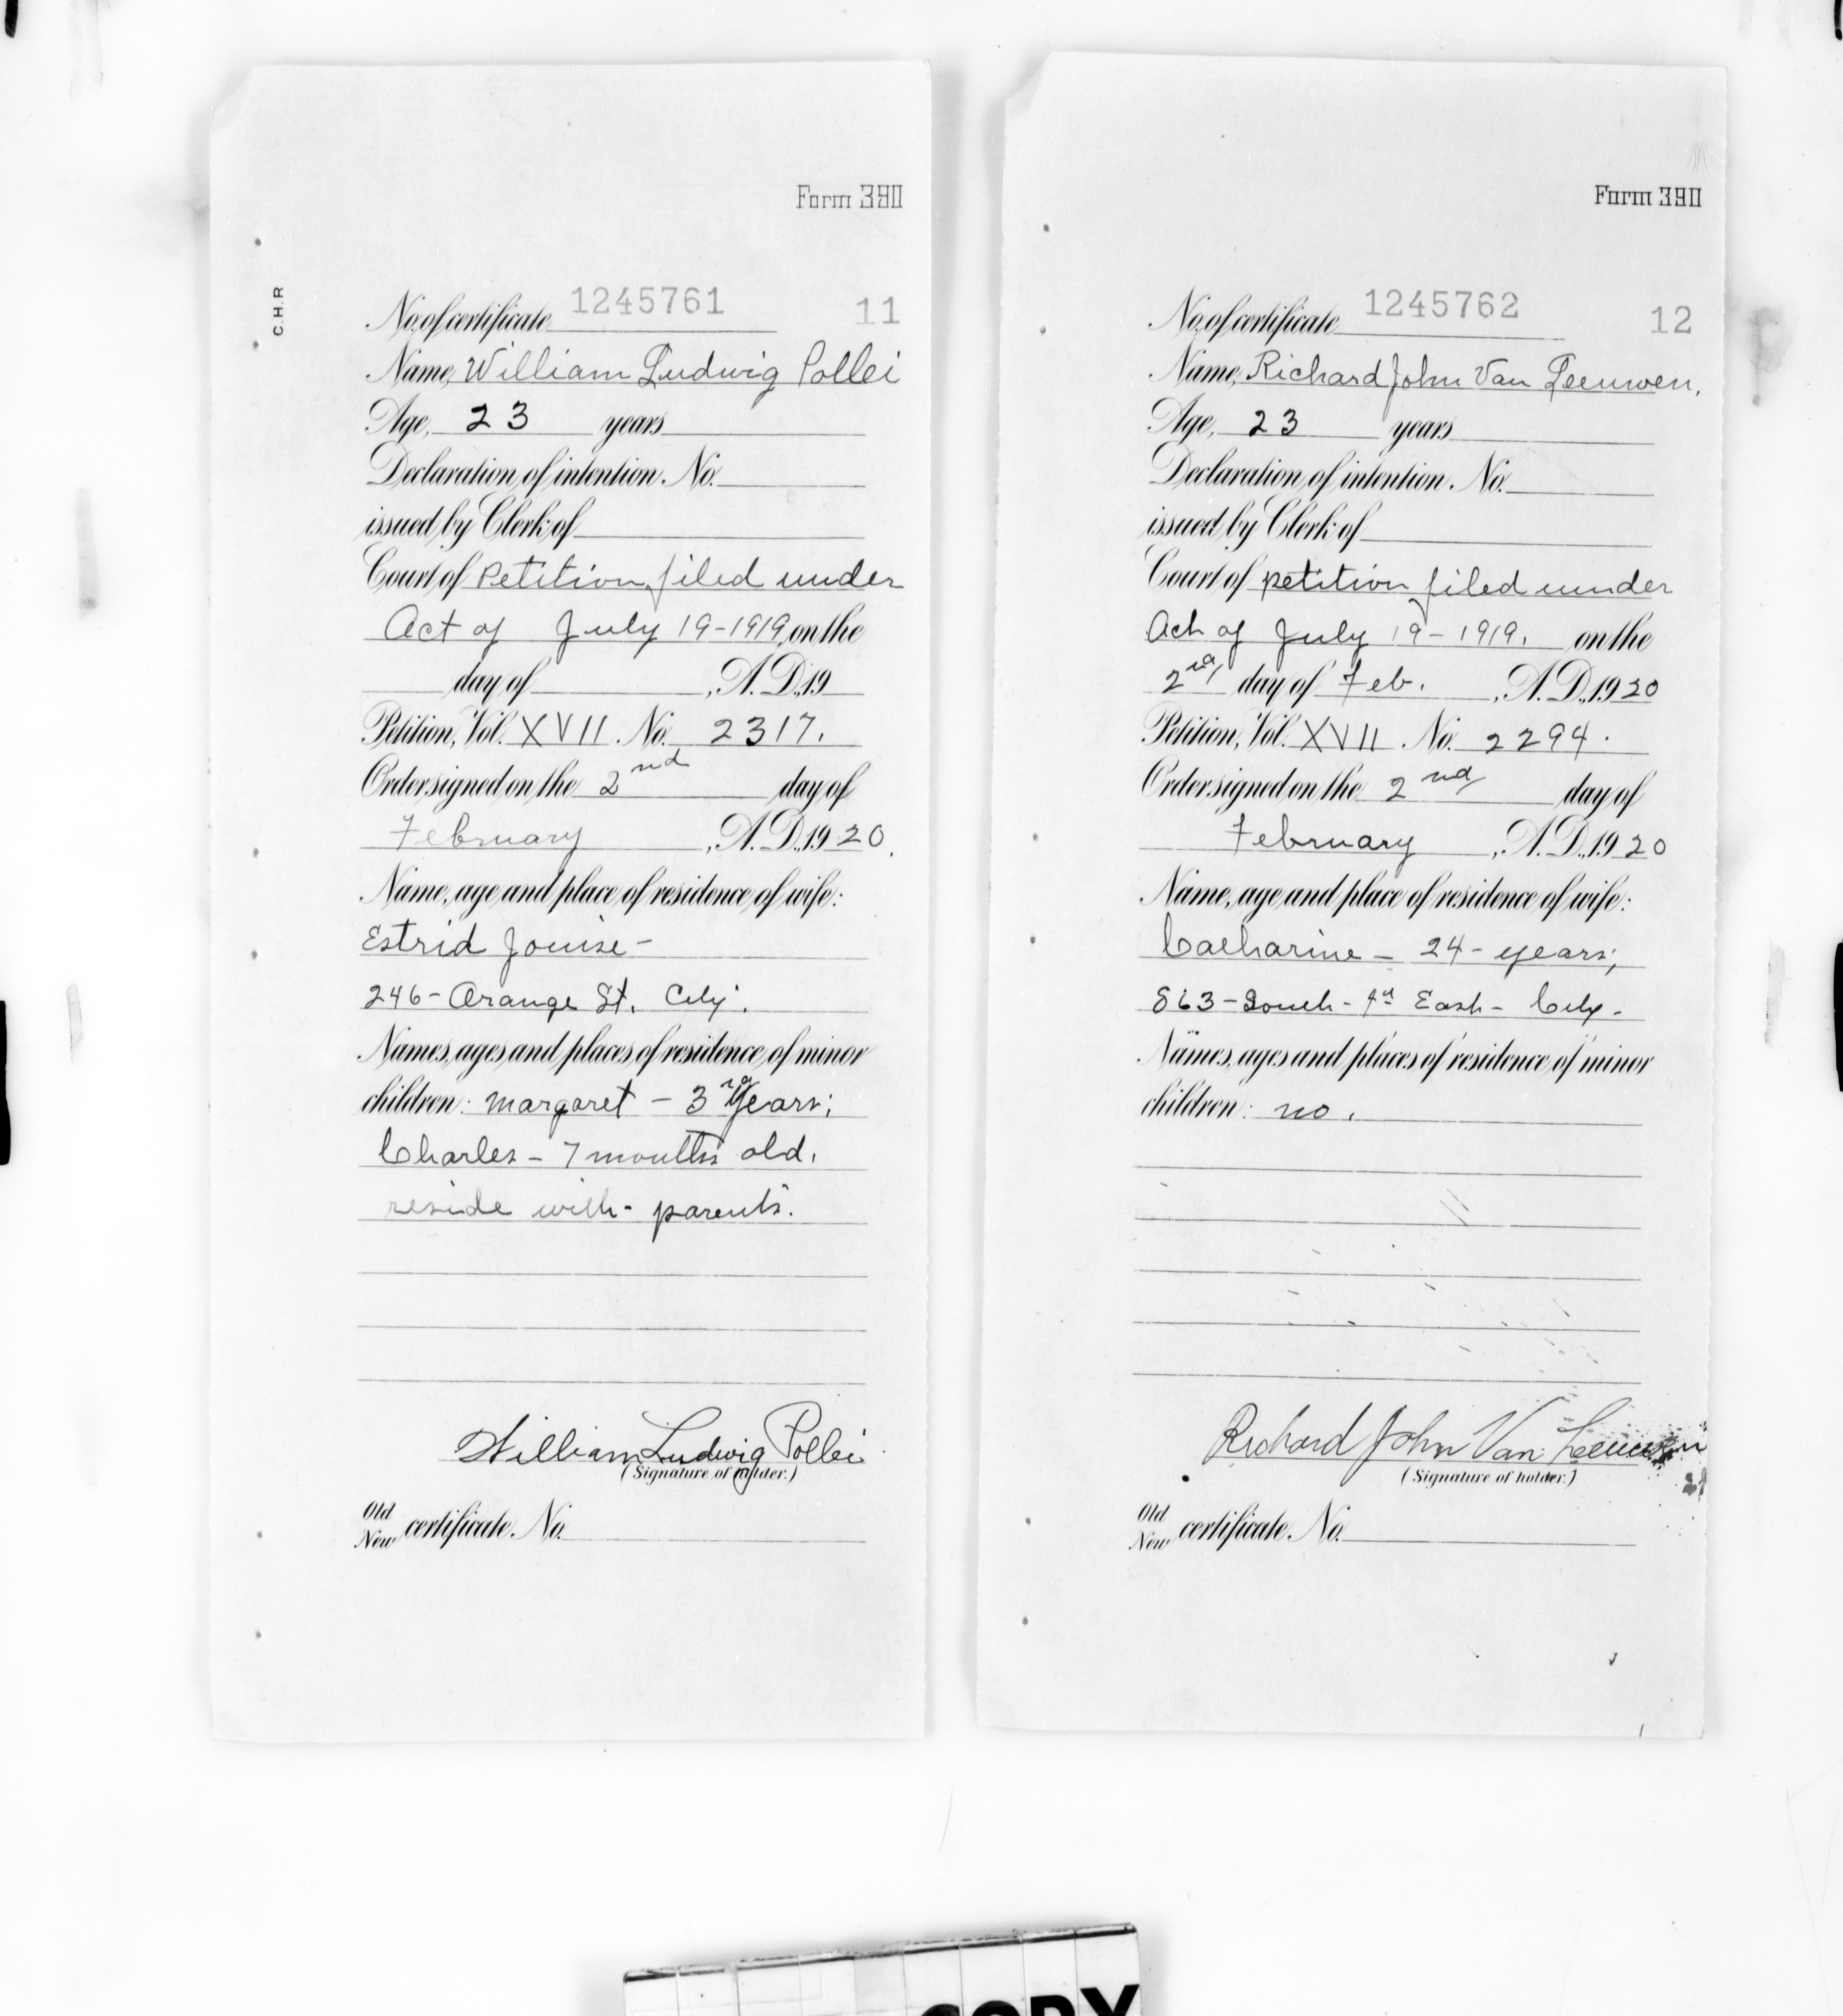 Form 390
C.H.R
No. of certificate 1245761 11
Name, William Ludwig Pollei
Age, 23 years
Declaration of intention. No.
issued by Clerk of
Court of Petition filed under
Act of July 19-1919, on the
day of , A.D., 19
Petition, Vol. XVII. No. 2317.
Order signed on the 2nd day of
February , A.D., 1920.
Name, age and place of residence of wife:
Estrid Louise -
246 - Orange St. City.
Names, ages and places of residence of minor
children: Margaret - 3 years;
Charles - 7 months old.
reside with - parents.
William Ludwig Pollei
(Signature of holder.)
Old
New certificate. No.
Form 390
No. of certificate 1245762 12
Name, Richard John Van Leeuwen.
Age, 23 years
Declaration of intention. No.
issued by Clerk of
Court of petition filed under
Act of July 19 - 1919. on the
2nd day of Feb. , A.D., 1920
Petition, Vol. XVII. No. 2294.
Order signed on the 2nd day of
February , A.D., 1920
Name, age and place of residence of wife:
Catharine - 24 - years;
863 - South - East - City -
Names, ages and places of residence of minor
children: no.
Richard John Van Leeuwen
(Signature of holder.)
Old
New certificate. No.
COPY